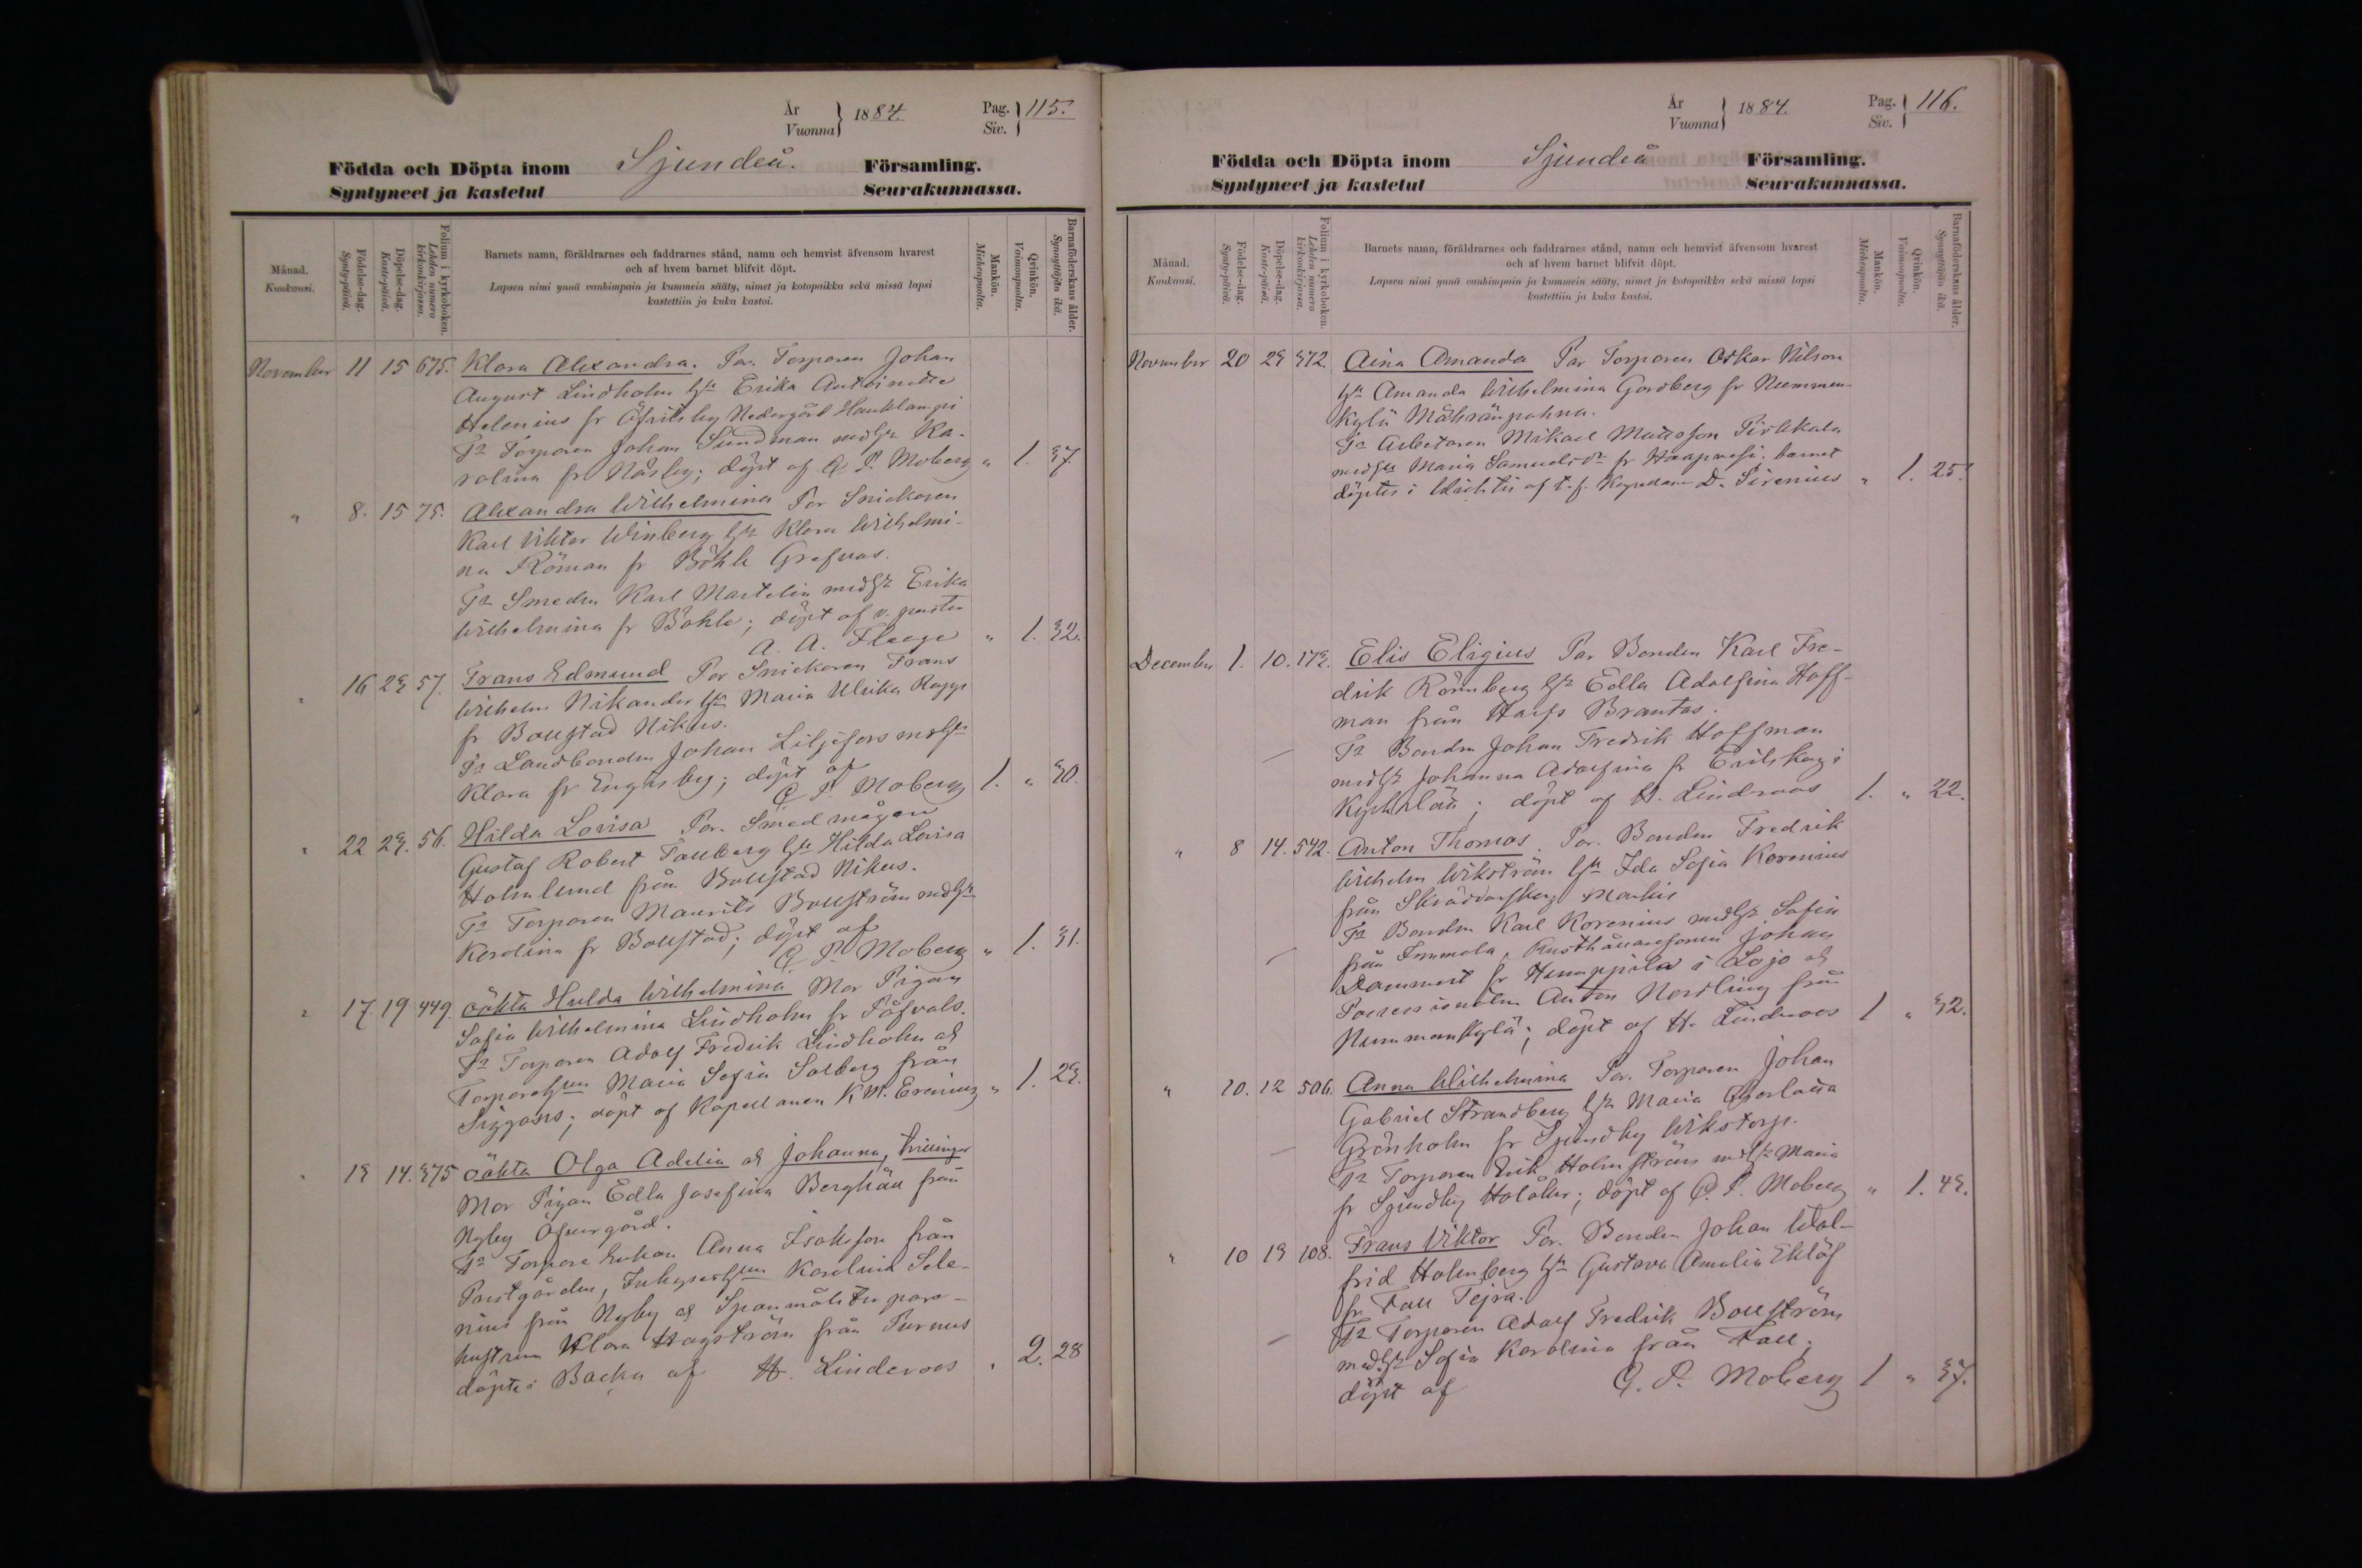 År
Vuonna
1884.
Pag.
Siv.
115.
Födda och Döpta inom
Syntyneet ja kastetut
Sjundeå.
Församling.
Seurakunnassa.
Månad.
Kuukausi.
Födelse-dag.
Synty-päivä.
Döpelse-dag.
Kaste-päivä.
Folium i kyrkoboken.
Lehden numero
kirkonkirjassa.
Barnets namn, föräldrarnes och faddrarnes stånd, namn och hemvist äfvensom hvarest
och af hvem barnet blifvit döpt.
Lapsen nimi ynnä vanhimpain ja kummein sääty, nimet ja kotopaikka sekä missä lapsi
kastettiin ja kuka kastoi.
Mankön.
Miehenpuolta.
Qvinkön.
Vaimonpuolta.
Barnaföderskans ålder.
Synnyttäjän ikä.
November 11 15 675. Klara Alexandra. Par. Torparen Johan
August Lindholm hst Erika Antoinette
Helenius fr Öfvitsby Nedergård Hauklampi
Fr Torparen Johan Sundman med hst Ka-
rolina fr Näsby; döpt af Q P. Moberg „ 1. 37.
„ 8. 15 75. Alexandra Wilhelmina Par Snickaren
Karl Viktor Winberg hst Klara Wilhelmi-
na Röman fr Böhle Grefvas.
Fr Smeden Karl Martelin med hst Erika
Wilhelmina fr Böhle; döpt af v. pastor
A. A. Fleege „ 1. 32.
„ 16 23 57. Frans Edmund Par Snickaren Frans
Wilhelm Nikander hst Maria Ulrika Rapp
fr Bollstad Nikus.
Fr Landbonden Johan Liljefors med hst
Klara fr Engisby; döpt af
Q P. Moberg 1. „ 30.
„ 22 23. 56. Hilda Lovisa Par. Smedmågen
Gustaf Robert Tallberg hst Hilda Lovisa
Holmlund från Bollstad Nikus.
Fr Torparen Maurits Bollström med hst
Karolina fr Bollstad; döpt af
Q P. Moberg „ 1. 31.
„ 17. 19 449. oäkta Hulda Wilhelmina Mor Pigan
Sofia Wilhelmina Lindholm fr Påfvals.
Fr Torparen Adolf Fredrik Lindholm ok
Maria Sofia Salberg från
Siggans; döpt af Kapellanen K M. Erenius „ 1. 23.
„ 13 14. 375 oäkta Olga Adelia ok Johanna, tvillingar
Mor Pigan Edla Josefina Berghäll från
Nyby Öfvergård.
Fr Torpare Enkan Anna Isaksson från
Prestgården, Karolina Sele-
nius från Nyby ok Spannmåls Torpare-
hustrun Klara Hagström från Purnus
döptes i Backa af H. Linderoos „ 2. 28
År
Vuonna
1884.
Pag.
Siv.
116.
Födda och Döpta inom
Syntyneet ja kastetut
Sjundeå
Församling.
Seurakunnassa.
Månad.
Kuukausi.
Födelse-dag.
Synty-päivä.
Döpelse-dag.
Kaste-päivä.
Folium i kyrkoboken.
Lehden numero
kirkonkirjassa.
Barnets namn, föräldrarnes och faddrarnes stånd, namn och hemvist äfvensom hvarest
och af hvem barnet blifvit döpt.
Lapsen nimi ynnä vanhimpain ja kummein sääty, nimet ja kotopaikka sekä missä lapsi
kastettiin ja kuka kastoi.
Mankön.
Miehenpuolta.
Qvinkön.
Vaimonpuolta.
Barnaföderskans ålder.
Synnyttäjän ikä.
November 20 23 372. Aina Amanda Par Torparen Oskar Nilson
hst Amanda Wilhelmina Gordberg fr Nummen-
kylä Mähränpahna.
Fr Arbetaren Mikael Mattsson Pirlikala
med hst Maria Samuelsdr fr Haapvesi. barnet
döptes i Wichtis af t.f. Kapellanen D. Sirenius „ 1. 25.
December 1. 10. 173. Elis Eligius Par Bonden Karl Fre-
drik Rönnberg hst Edla Adolfina Hoff-
man från Harfs Brantas.
Fr Bonden Johan Fredrik Hoffman
med hst Johanna Adolfina fr Evitskog i
Kyrkslätt; döpt af H. Lindroos 1. „ 22.
„ 8 14. 542. Anton Thomas. Par. Bonden Fredrik
Wilhelm Wikström hst Ida Sofia Korenius
från Skräddarskog Markis
Fr Bonden Karl Korenius med hst Sofia
från Immola, Rusthållaresonen Johan
Dammert fr Hemppila i Lojo ok
Anton Nordling från
Nummenkylä; döpt af H. Lindroos 1 „ 32.
„ 10. 12 506. Anna Wilhelmina Par. Torparen Johan
Gabriel Strandberg hst Maria
Grönholm fr Sjundby Wikstorp.
Fr Torparen Erik Holmström med hst Maria
fr Sjundby Holåker; döpt af Q. P. Moberg „ 1. 43.
„ 10 13 108. Frans Viktor Par. Bonden Johan Wal-
frid Holmberg hst Gustava Amalia Eklöf
fr Fall Tejra.
Fr Torparen Adolf Fredrik Bollström
med hst Sofia Karolina från Fall;
döpt af Q. P. Moberg 1 „ 37.